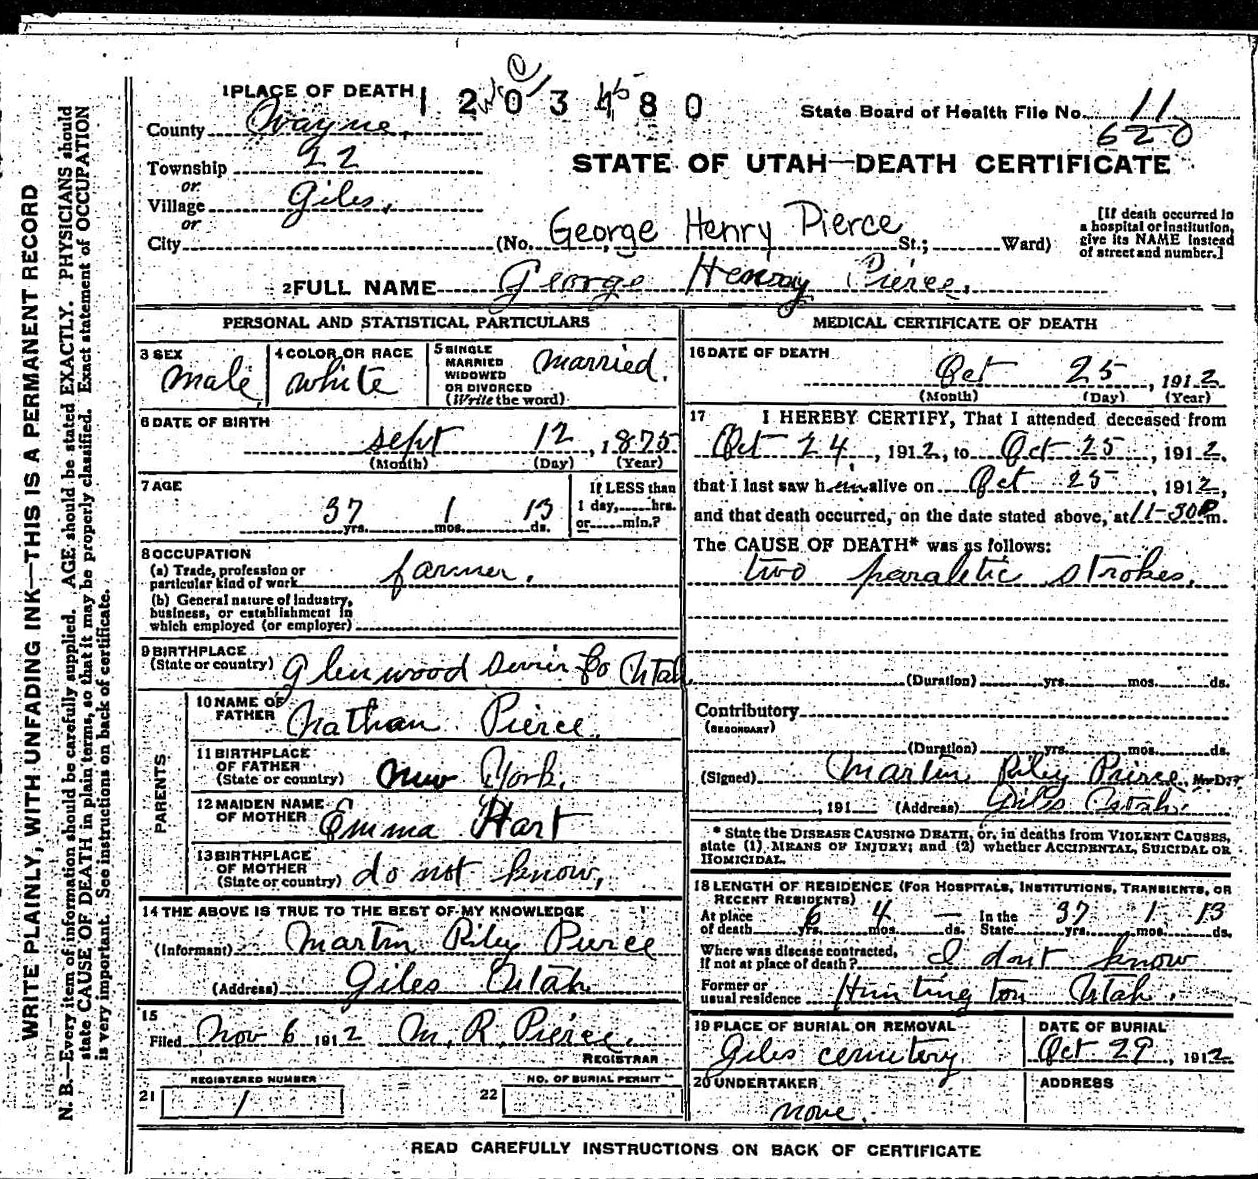 1 PLACE OF DEATH
1 203480
W.C.
45
State Board of Health File No. 11
620
County Wayne,
Township 22
or
Village Giles,
or
STATE OF UTAH—DEATH CERTIFICATE
City (No. George Henry Pierce St.; Ward)
[If death occurred in a hospital or institution, give its NAME instead of street and number.]
2 FULL NAME George Henry Pierce,
PERSONAL AND STATISTICAL PARTICULARS
3 SEX male
4 COLOR OR RACE white
5 SINGLE MARRIED WIDOWED OR DIVORCED (Write the word) married.
6 DATE OF BIRTH
sept 12, 1875
(Month) (Day) (Year)
7 AGE
37 yrs. 1 mos. 13 ds.
If LESS than 1 day, hrs. or min.?
8 OCCUPATION
(a) Trade, profession or particular kind of work farmer.
(b) General nature of industry, business, or establishment in which employed (or employer)
9 BIRTHPLACE
(State or country) Glenwood Sevier Co Utah
PARENTS
10 NAME OF FATHER Nathan Pierce.
11 BIRTHPLACE OF FATHER (State or country) New York.
12 MAIDEN NAME OF MOTHER Emma Hart
13 BIRTHPLACE OF MOTHER (State or country) do not know,
14 THE ABOVE IS TRUE TO THE BEST OF MY KNOWLEDGE
(Informant) Martin Riley Pierce
(Address) Giles Utah
15
Filed Nov 6 1912 M. R. Pierce.
REGISTRAR
21 REGISTERED NUMBER 1
22 NO. OF BURIAL PERMIT
MEDICAL CERTIFICATE OF DEATH
16 DATE OF DEATH
Oct 25, 1912
(Month) (Day) (Year)
17 I HEREBY CERTIFY, That I attended deceased from
Oct 24, 1912, to Oct 25, 1912,
that I last saw him alive on Oct 25, 1912,
and that death occurred, on the date stated above, at 11-30 P m.
The CAUSE OF DEATH* was as follows:
two paraletic strokes.
(Duration) yrs. mos. ds.
Contributory
(SECONDARY)
(Duration) yrs. mos. ds.
(Signed) Martin Riley Pierce, M. D.
, 191 (Address) Giles Utah.
* State the DISEASE CAUSING DEATH, or, in deaths from VIOLENT CAUSES,
state (1) MEANS OF INJURY; and (2) whether ACCIDENTAL, SUICIDAL OR
HOMICIDAL.
18 LENGTH OF RESIDENCE (FOR HOSPITALS, INSTITUTIONS, TRANSIENTS, OR
RECENT RESIDENTS)
At place of death 6 yrs. 4 mos. — ds. In the State 37 yrs. 1 mos. 13 ds.
Where was disease contracted, If not at place of death? I dont know
Former or usual residence Huntington Utah.
19 PLACE OF BURIAL OR REMOVAL
Giles cemetery
DATE OF BURIAL
Oct 29, 1912
20 UNDERTAKER
none.
ADDRESS
READ CAREFULLY INSTRUCTIONS ON BACK OF CERTIFICATE
WRITE PLAINLY, WITH UNFADING INK—THIS IS A PERMANENT RECORD
N. B.—Every item of information should be carefully supplied. AGE should be stated EXACTLY. PHYSICIANS should
state CAUSE OF DEATH in plain terms, so that it may be properly classified. Exact statement of OCCUPATION
is very important. See instructions on back of certificate.